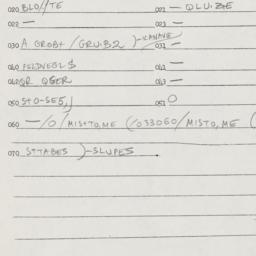 020 BLO//TE 021 — QLU.BE
022 — 023 —
030 A GROBT / GRUB2 }-KANAVE 031 —
040 FELDVEGL $ 041 —
042 QR QGER 043 —
050 STO-SE5,) 051 O
060 — /O/MISTTO,ME (/033060/MISTO,ME (
070 STTABES }-SLUPES .